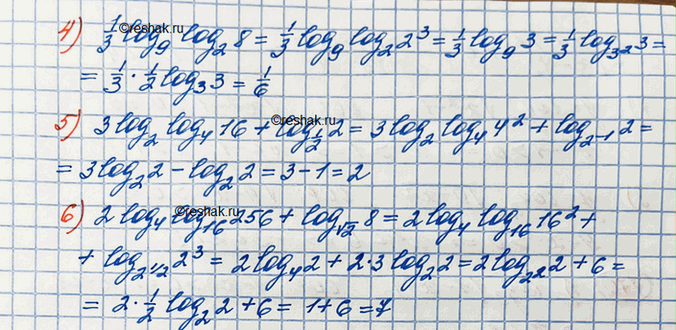 4) 1/3 log₉ log₂ 8 = 1/3 log₉ log₂ 2³ = 1/3 log₉ 3 = 1/3 log₃₂ 3 =
= 1/3 · 1/2 log₃ 3 = 1/6
5) 3 log₂ log₄ 16 + log_{1/2} 2 = 3 log₂ log₄ 4² + log_{2⁻¹} 2 =
= 3 log₂ 2 − log₂ 2 = 3 − 1 = 2
6) 2 log₄ log₁₆ 256 + log_{√2} 8 = 2 log₄ log₁₆ 16² +
+ log_{2^{1/2}} 2³ = 2 log₄ 2 + 2·3 log₂ 2 = 2 log_{2²} 2 + 6 =
= 2 · 1/2 log₂ 2 + 6 = 1 + 6 = 7
©reshak.ru
©reshak.ru
©reshak.ru